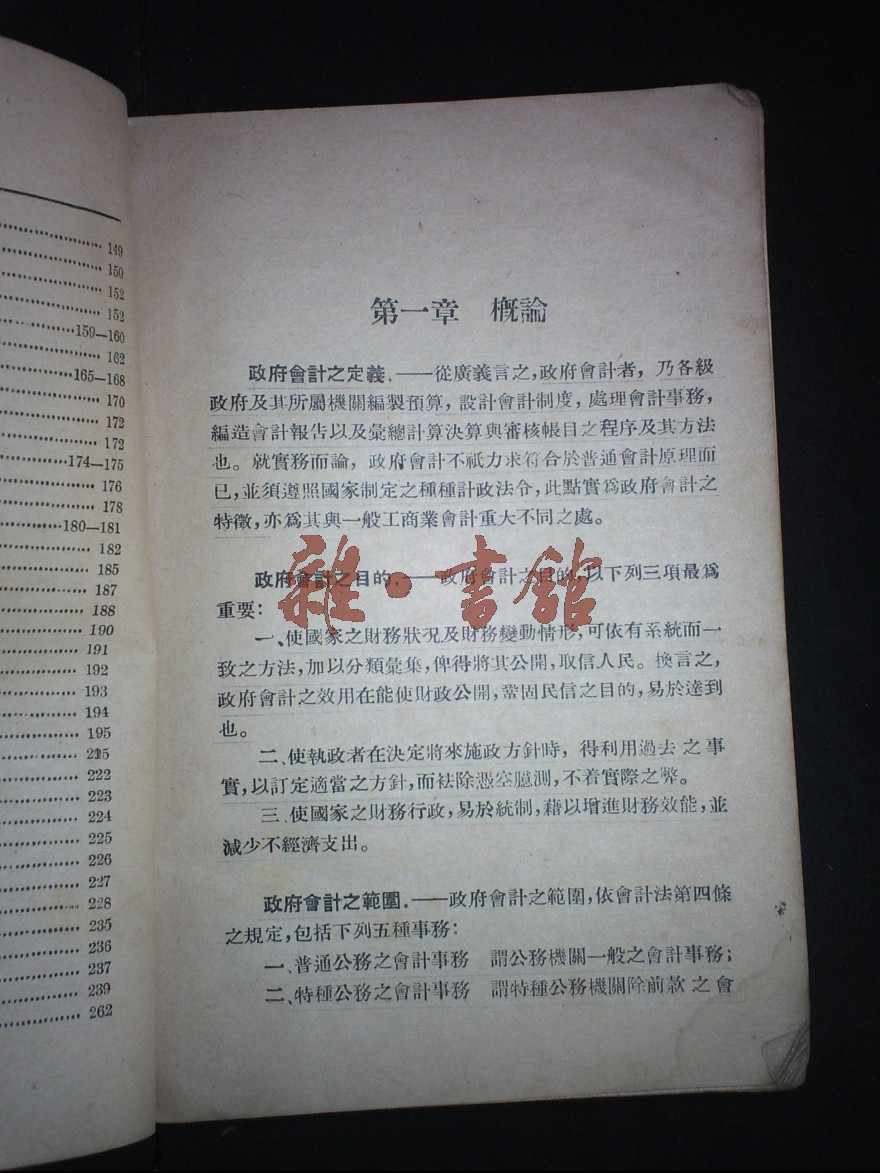 149
150
152
152
159—160
162
165—168
170
172
172
174—175
176
178
180—181
182
185
187
188
190
191
192
193
194
195
215
222
223
224
225
226
227
228
235
236
237
239
262
第一章　概論
政府會計之定義.——從廣義言之,政府會計者，乃各級
政府及其所屬機關編製預算，設計會計制度，處理會計事務，
編造會計報告以及彙總計算決算與審核帳目之程序及其方法
也。就實務而論，政府會計不祇力求符合於普通會計原理而
已,並須遵照國家制定之種種計政法令，此點實爲政府會計之
特徵,亦爲其與一般工商業會計重大不同之處。
政府會計之目的.——政府會計之目的,以下列三項最爲
重要：
一、使國家之財務狀況及財務變動情形,可依有系統而一
致之方法,加以分類彙集,俾得將其公開,取信人民。換言之，
政府會計之效用在能使財政公開,鞏固民信之目的,易於達到
也。
二、使執政者在決定將來施政方針時，得利用過去之事
實,以訂定適當之方針,而袪除憑空臆測,不着實際之弊。
三、使國家之財務行政,易於統制,藉以增進財務效能,並
減少不經濟支出。
政府會計之範圍.——政府會計之範圍,依會計法第四條
之規定,包括下列五種事務：
一、普通公務之會計事務　謂公務機關一般之會計事務；
二、特種公務之會計事務　謂特種公務機關除前款之會
雜·書館